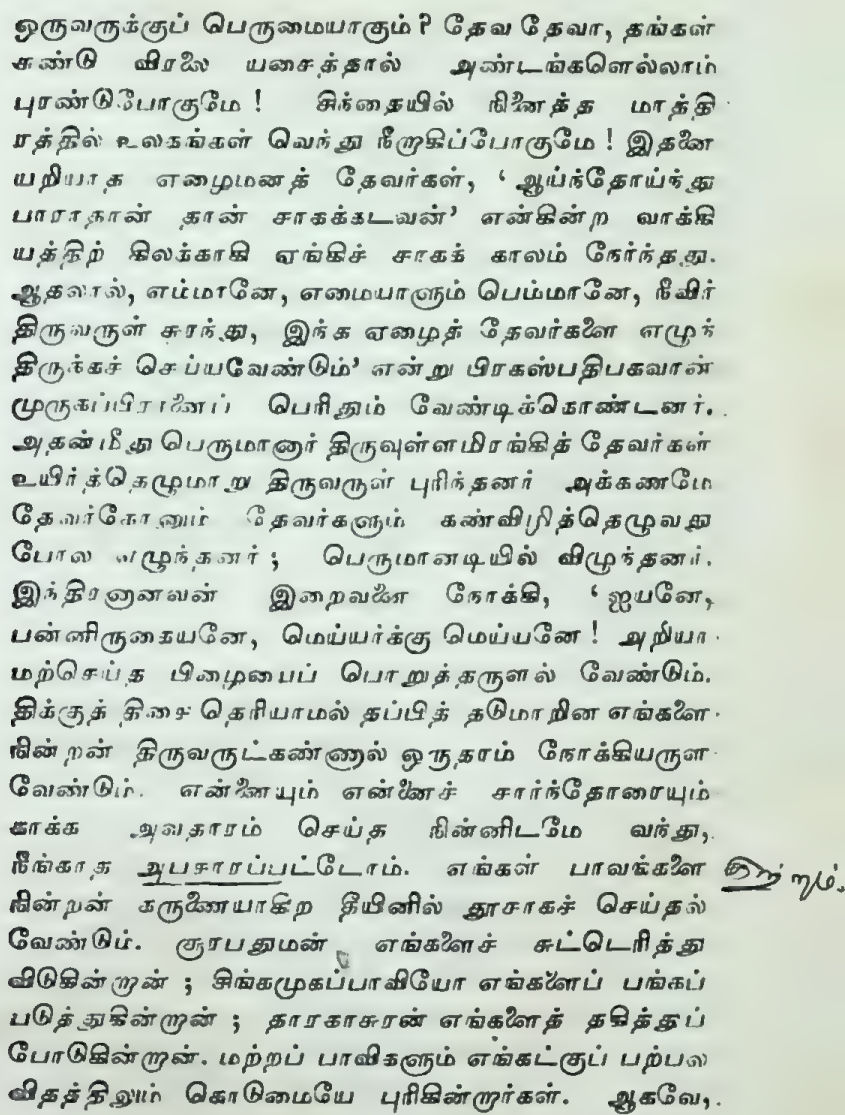 ஒருவருக்குப் பெருமையாகும்? தேவ தேவா, தங்கள்
சுண்டு விரலை யசைத்தால் அண்டங்களெல்லாம்
புரண்டுபோகுமே! சிந்தையில் நினைத்த மாத்தி
ரத்தில் உலகங்கள் வெந்து நீறாகிப்போகுமே! இதனை
யறியாத எழைமனத் தேவர்கள், ‘ஆய்ந்தோய்ந்து
பாராதான் தான் சாகக்கடவன்’ என்கின்ற வாக்கி
யத்திற் கிலக்காகி ஏங்கிச் சாகக் காலம் நேர்ந்தது.
ஆதலால், எம்மானே, எமையாளும் பெம்மானே, நீவிர்
திருவருள் சுரந்து, இந்த ஏழைத் தேவர்களை எழுந்
திருக்கச் செய்யவேண்டும்’ என்று பிரகஸ்பதிபகவான்
முருகப்பிரானைப் பெரிதும் வேண்டிக்கொண்டனர்.
அதன்மீது பெருமானார் திருவுள்ளமிரங்கித் தேவர்கள்
உயிர்த்தெழுமாறு திருவருள் புரிந்தனர் அக்கணமே
தேவர்கோனும் தேவர்களும் கண்விழித்தெழுவது
போல எழுந்தனர்; பெருமானடியில் விழுந்தனர்.
இந்திரனானவன் இறைவனை நோக்கி, ‘ஐயனே,
பன்னிருகையனே, மெய்யர்க்கு மெய்யனே! அறியா
மற்செய்த பிழையைப் பொறுத்தருளல் வேண்டும்.
திக்குத் திசை தெரியாமல் தப்பித் தடுமாறின எங்களை
நின்றன் திருவருட்கண்ணால் ஒருதரம் நோக்கியருள
வேண்டும். என்னையும் என்னைச் சார்ந்தோரையும்
காக்க அவதாரம் செய்த நின்னிடமே வந்து,
நீங்காத அபசாரப்பட்டோம். எங்கள் பாவங்களை குற்றம்.
நின்றன் கருணையாகிற தீயினில் தூசாகச் செய்தல்
வேண்டும். சூரபதுமன் எங்களைச் சுட்டெரித்து
விடுகின்றான்; சிங்கமுகப்பாவியோ எங்களைப் பங்கப்
படுத்துகின்றான்; தாரகாசுரன் எங்களைத் தகித்துப்
போடுகின்றான். மற்றப் பாவிகளும் எங்கட்குப் பற்பல
விதத்திலும் கொடுமையே புரிகின்றார்கள். ஆகவே,